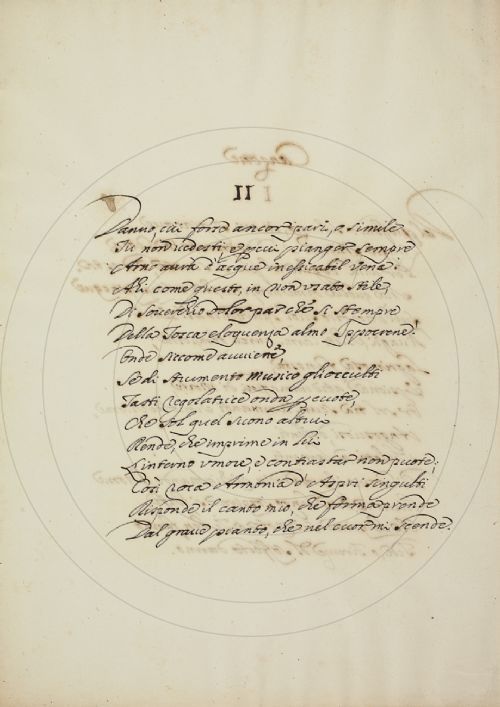 II
Danno, cui forse ancor pari, o simile
Tu non vedesti, e per cui pianger sempre
Arno avrà d'acque inessicabil vena:
Ahi come questo, in non usato stile,
Di soverchio dolor par che si stempre
Della Tosca eloquenza almo Ippocrene!
Onde siccome avviene,
Se di strumento Musico gli occulti
Tasti regolatrice onda percote,
Che sol quel suono altrui
Rende, che imprime in lui
L'interno umore, e contrastar non puote:
Così roca Armonia d'aspri singulti
Risponde il canto mio, che forma prende
Dal grave pianto, che nel cuor mi scende.